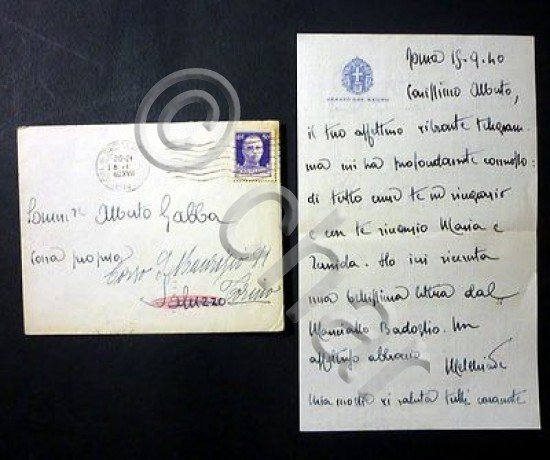 Alberto Gabba
Corso
Saluzzo
Torino
SENATO DEL REGNO
Roma 15-9-40
Carissimo Alberto,
il tuo affettuoso vibrante telegram-
ma mi ha profondamente commosso:
di tutto cuore te ne ringrazio
e con te ringrazio Maria e
Ho ieri ricevuta
una bellissima lettera dal
Maresciallo Badoglio. Un
affettuoso abbraccio
Melchiade
mia moglie vi saluta tutti caramente
© Cher